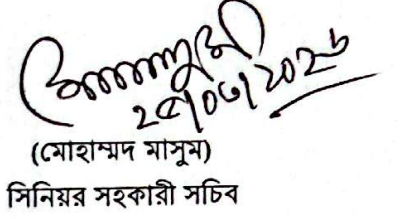 ২৫/০৩/২০২৬
(মোহাম্মদ মাসুম)
সিনিয়র সহকারী সচিব